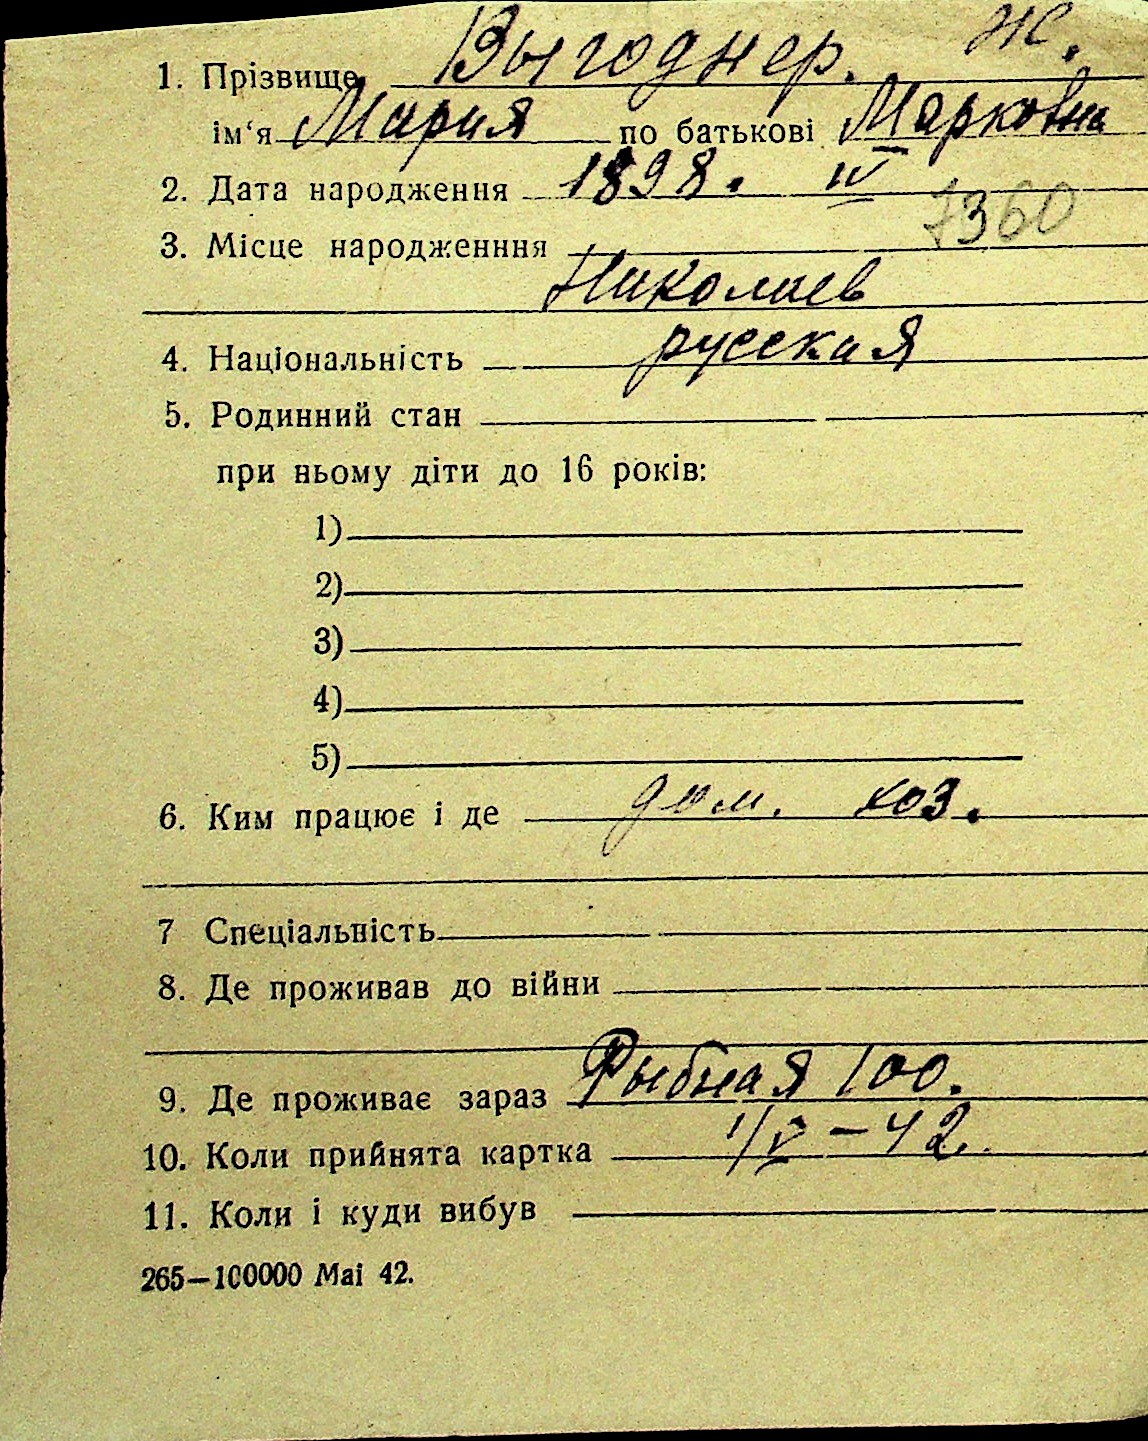 1. Прізвище Выгоднер. Ж.
ім‘я Мария по батькові Марковна
2. Дата народження 1898. IV
7360
3. Місце народженння
Николаев
4. Національність русская
5. Родинний стан
при ньому діти до 16 років:
1)
2)
3)
4)
5)
6. Ким працює і де дом. хоз.
7 Спеціальність
8. Де проживав до війни
9. Де проживає зараз Рыбная 100.
10. Коли прийнята картка 1/V – 42.
11. Коли і куди вибув
265—100000 Mai 42.